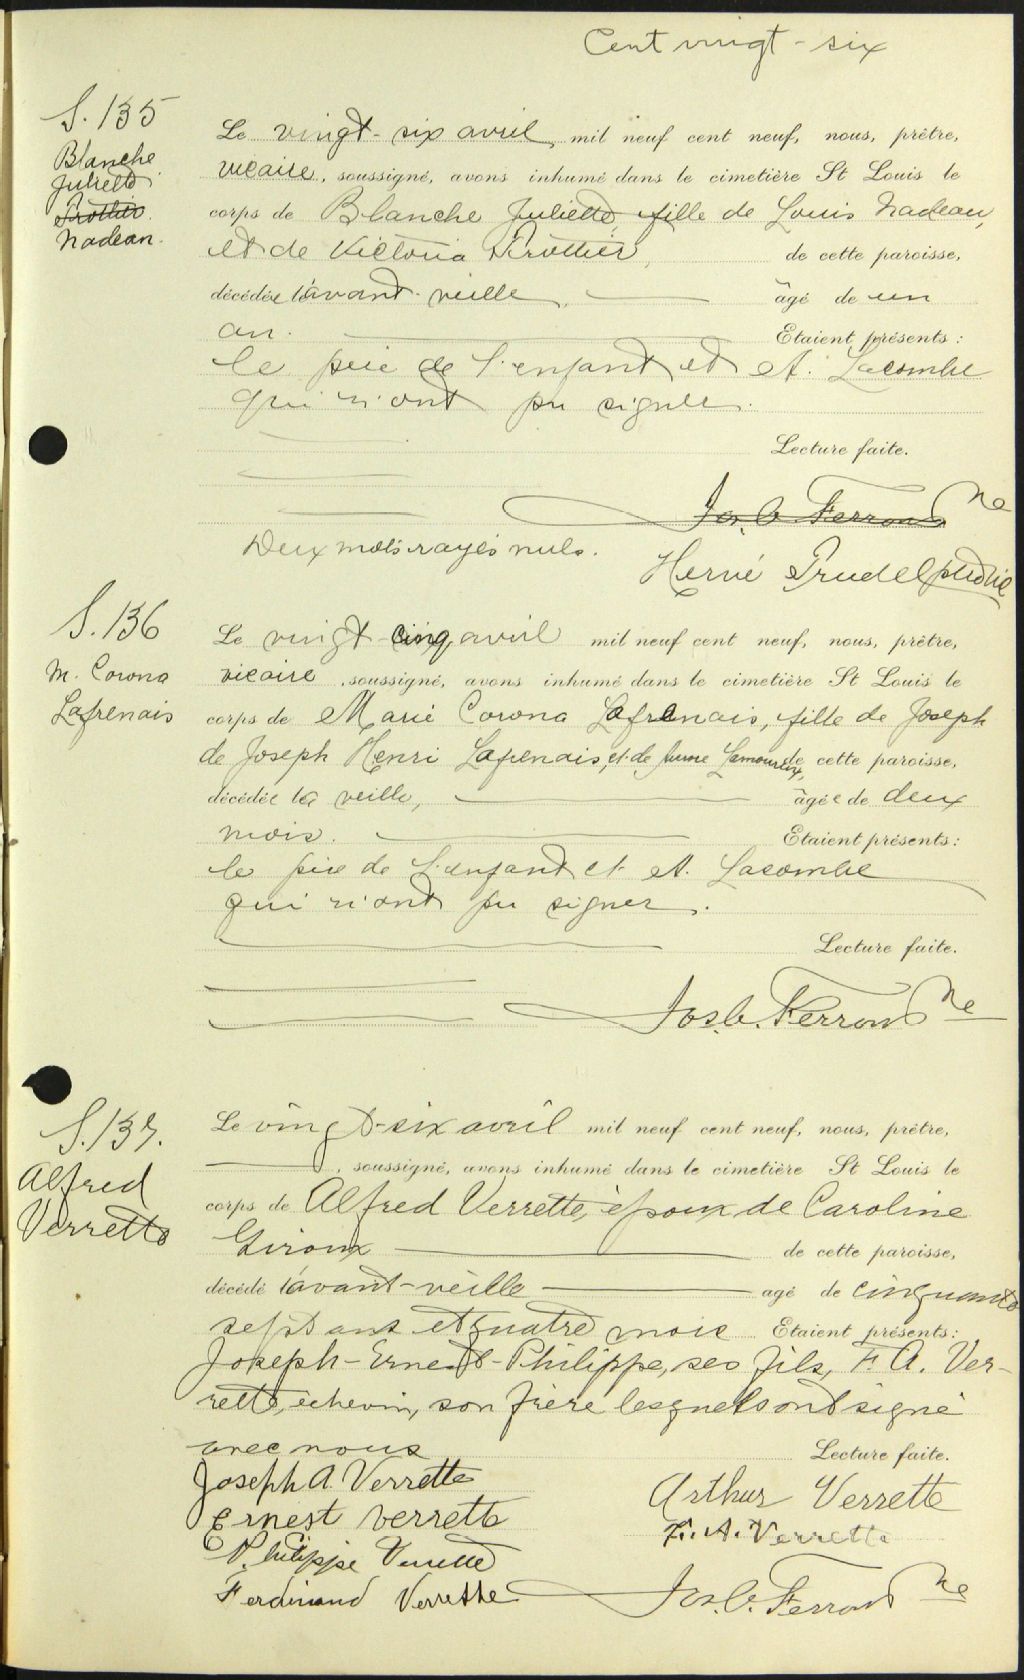 Cent vingt-six
S. 135
Blanche
Juliette
Trottier
Nadeau.
Le vingt-six avril mil neuf cent neuf, nous, prêtre,
vicaire, soussigné, avons inhumé dans le cimetière St Louis le
corps de Blanche Juliette, fille de Louis Nadeau,
et de Victoria Trottier, de cette paroisse,
décédée l'avant-veille, âgé de un
an. Etaient présents:
le père de l'enfant et A. Lacombe
qui n'ont pu signer.
Lecture faite.
Jos. C. Ferron
Deux mots rayés nuls.
Hervé Trudel ptre vic
S. 136
M. Corona
Lafrenais
Le vingt-cinq avril mil neuf cent neuf, nous, prêtre,
vicaire, soussigné, avons inhumé dans le cimetière St Louis le
corps de Marie Corona Lafrenais, fille de Joseph
de Joseph Henri Lafrenais, et de Anne Lamoureux, de cette paroisse,
décédée la veille, âgée de deux
mois. Etaient présents:
le père de l'enfant et A. Lacombe
qui n'ont pu signer.
Lecture faite.
Jos. C. Ferron
S. 137.
Alfred
Verrette
Le vingt-six avril mil neuf cent neuf, nous, prêtre,
, soussigné, avons inhumé dans le cimetière St Louis le
corps de Alfred Verrette, époux de Caroline
Giroux de cette paroisse,
décédé l'avant-veille agé de cinquante
sept ans et quatre mois Etaient présents:
Joseph-Ernest-Philippe, ses fils, F. A. Ver-
rette, échevin, son frère lesquels ont signé
avec nous
Lecture faite.
Joseph A. Verrette
Arthur Verrette
Ernest Verrette
F. A. Verrette
Philippe Verrette
Ferdinand Verrette
Jos. C. Ferron